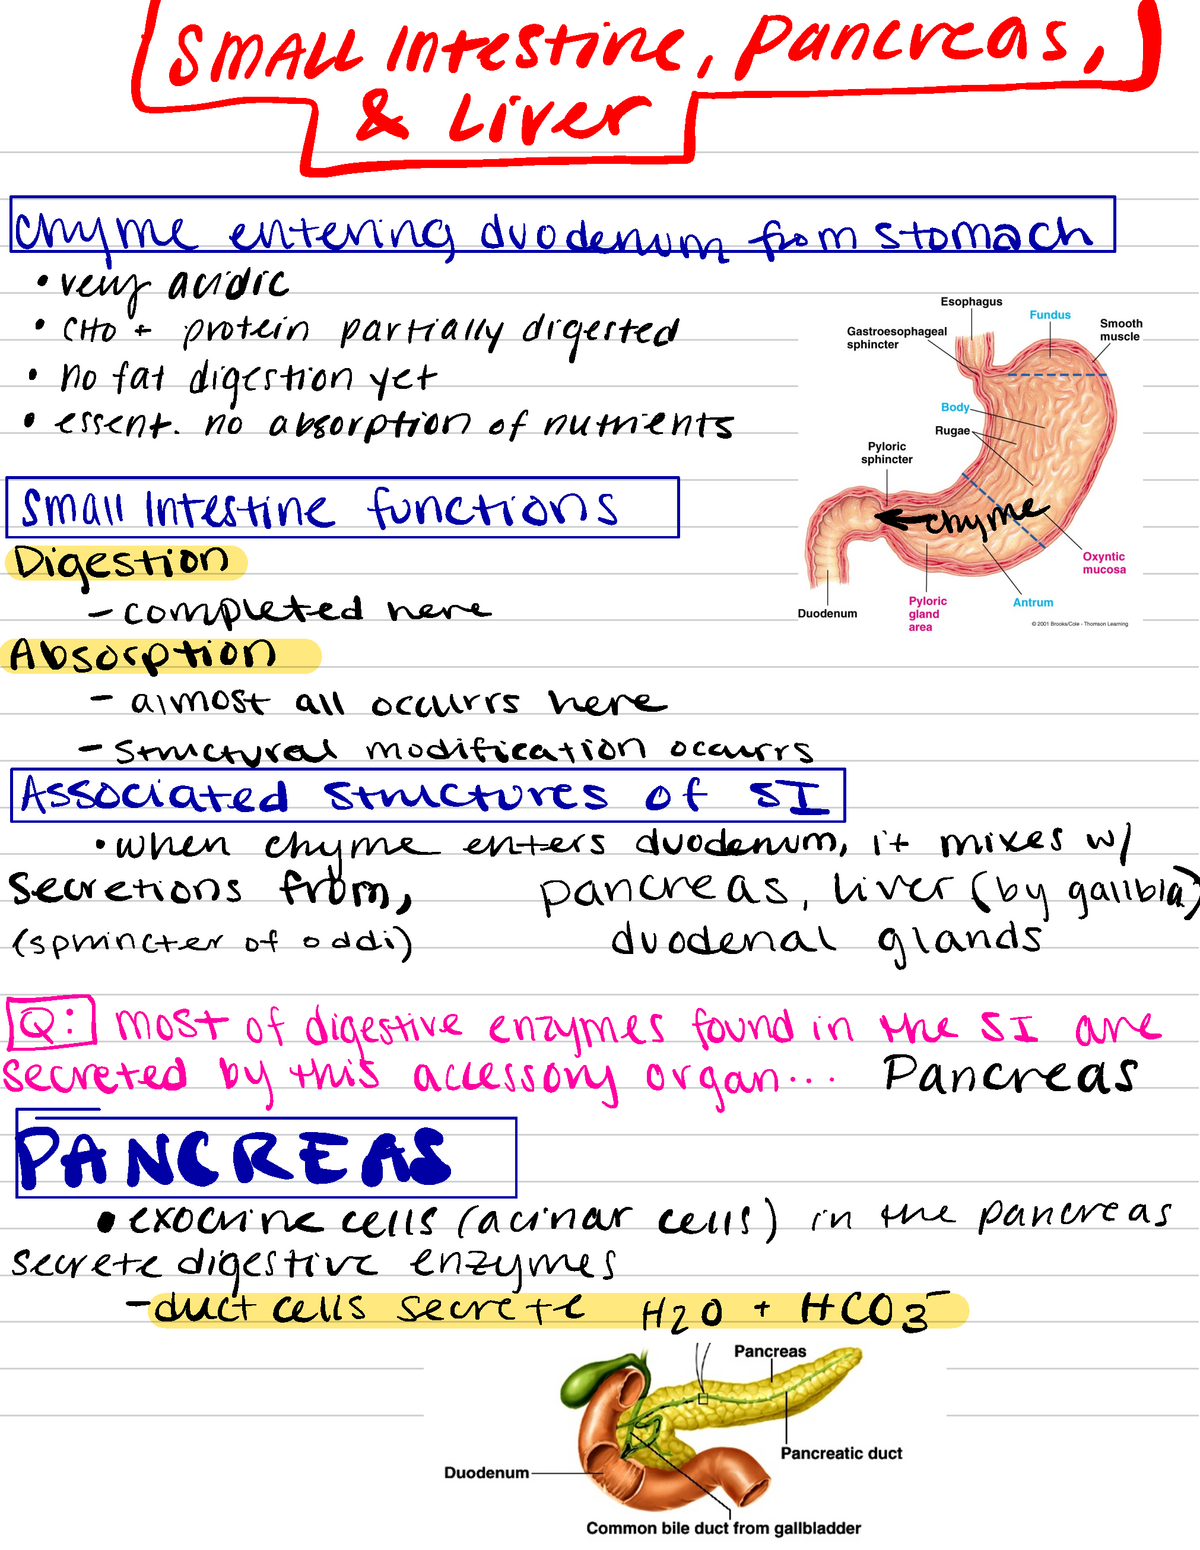 Small Intestine, Pancreas,
& Liver
Chyme entering duodenum from stomach
• very acidic
• CHO + protein partially digested
• no fat digestion yet
• essent. no absorption of nutrients
Esophagus
Fundus
Gastroesophageal
sphincter
Smooth
muscle
Body
Rugae
Pyloric
sphincter
chyme
Oxyntic
mucosa
Duodenum
Pyloric
gland
area
Antrum
© 2001 Brooks/Cole - Thomson Learning
Small Intestine functions
Digestion
- completed here
Absorption
- almost all occurrs here
- structural modification occurrs
Associated structures of SI
• when chyme enters duodenum, it mixes w/
secretions from, pancreas, liver (by gallbla)
(sphincter of oddi) duodenal glands
Q: most of digestive enzymes found in the SI are
secreted by this accessory organ... Pancreas
PANCREAS
• exocrine cells (acinar cells) in the pancreas
secrete digestive enzymes
- duct cells secrete H2O + HCO3-
Pancreas
Pancreatic duct
Duodenum
Common bile duct from gallbladder